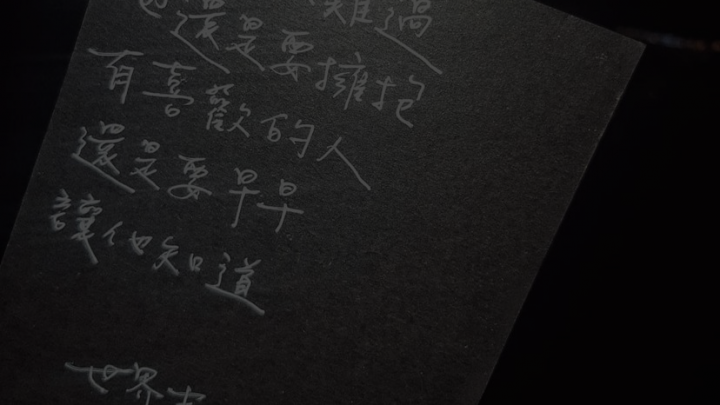 難過
還是要擁抱
有喜歡的人
還是要早早
讓他知道
世界